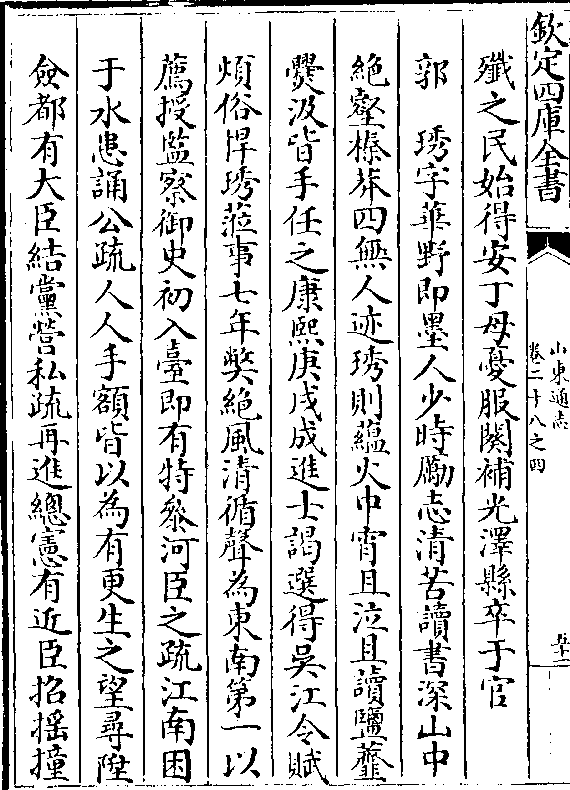 欽定四庫全書
山東通志
卷二十八之四
殲之民始得安丁母憂服闋補光澤縣卒于官
郭 琇字華野即墨人少時勵志清苦讀書深山中
絶壑榛莽四無人迹琇則藴火中宵且泣且讀鹽虀
爨汲皆手任之康熙庚戌成進士謁選得吳江令賦
煩俗悍琇蒞事七年獘絶風清循聲為東南第一以
薦授監察御史初入臺即有特叅河臣之疏江南困
于水患誦公疏人人手額皆以為有更生之望尋陞
僉都有大臣結黨營私疏再進總憲有近臣招摇撞